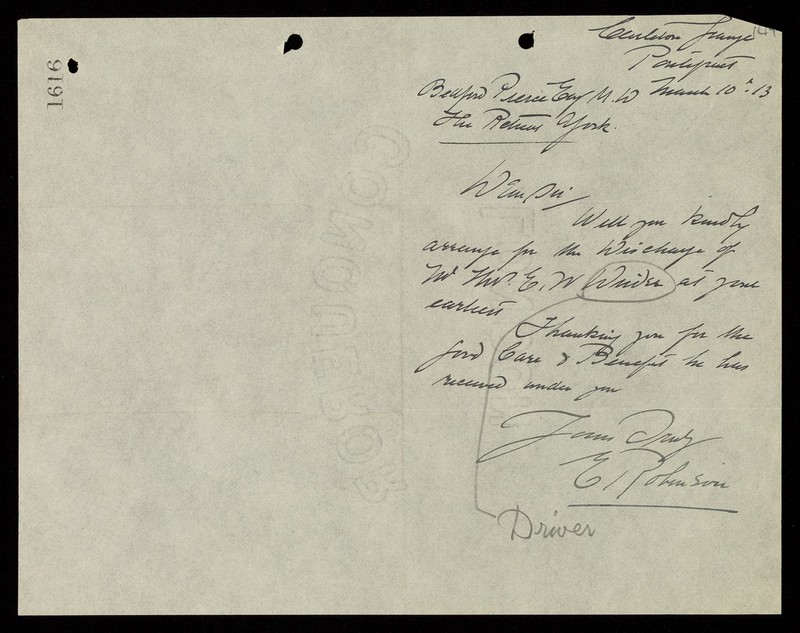 1616
144
Carleton Grange
Pontefract
March 10th 13
Bedford Pierce Esq M.D
The Retreat York.
Dear Sir/
Will you kindly
arrange for the Discharge of
Mr Thos. E. W Driver at your
earliest
Thanking you for the
good Care & Benefit he has
received under you
Yours Truly
E Robinson
Driver